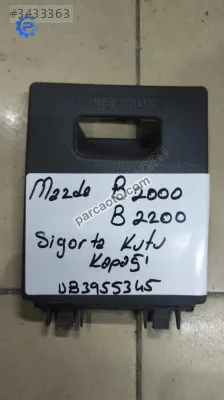 #3433363
FUSE BOX
Mazda B2000
parcaoto.com
B2200
Sigorta Kutu
Kapağı
UB3955345